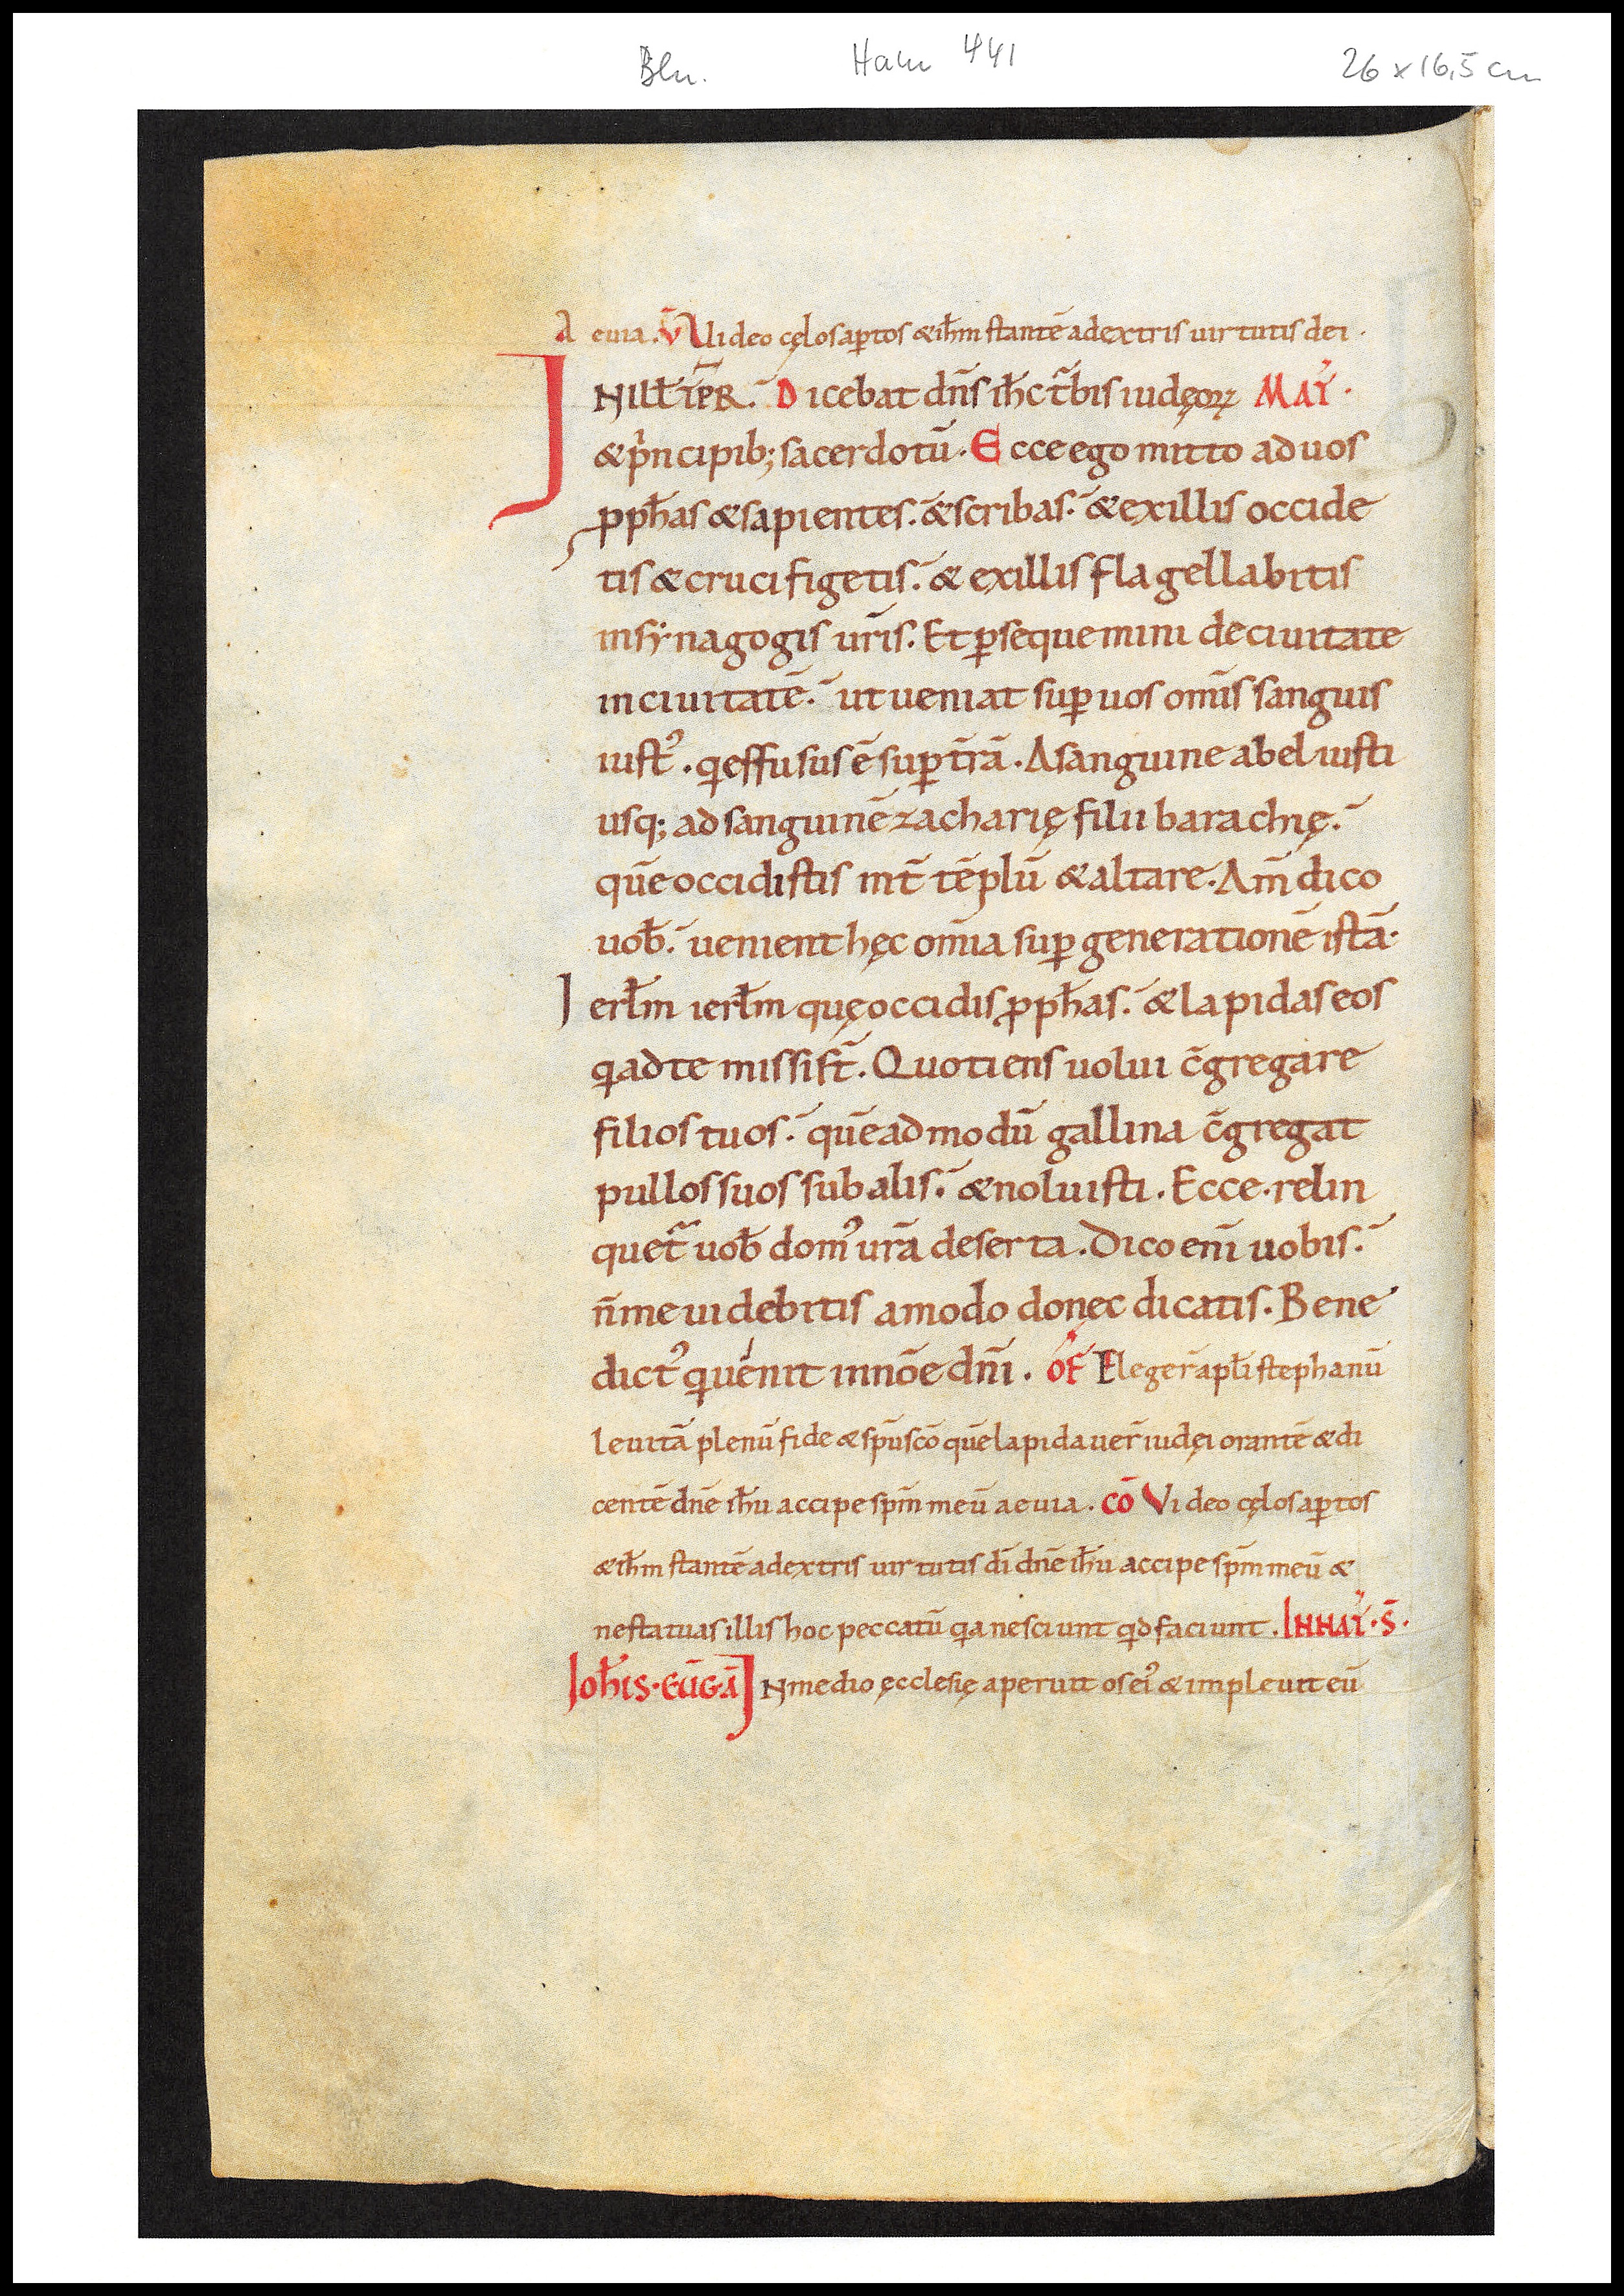 Bln. Ham 441 26 x 16,5 cm
A euia. V̄ Uideo cęlos aꝑtos & ih̄m stantē adextris uirtutis dei ·
IN ILŁ TP̄R. Dicebat dn̄s ih̄c t̄bis iudęoꝝ MAT᷒ ·
& p̄ncipib; sacerdotū. Ecce ego mitto ad uos
ꝓph̄as & sapientes. & scribas. & ex illis occide
tis & crucifigetis. & ex illis flagellabitis
in synagogis ur̄is. Et ꝑsequemini de ciuitate
in ciuitatē. ut ueniat suꝑ uos om̄s sanguis
iust᷒. q̇ effusus ē suꝑ tr̄ā. A sanguine abel iusti
usq; ad sanguinē zacharię filii barachię.
quē occidistis int̄ tēplū & altare. Am̄ dico
uob̄. uenient hęc om̄ia suꝑ generationē istā.
Ierłm ierłm quę occidis ꝓph̄as. & lapidas eos
q̇ ad te missi st̄. Quotiens uolui c̄gregare
filios tuos. quē ad modū gallina c̄gregat
pullos suos sub alis. & noluisti. Ecce. relin
quet᷑ uob̄ dom᷒ ur̄a deserta. Dico eni̅ uobis.
n̄ me uidebitis amodo donęc dicatis. Bene
dict᷒ q̇ uenit in nōe dn̄i. OF̄ Eleger̄ apłi stephanū
leuitā plenū fide & spū scō quē lapidauer̄ iudęi orantē & di
centē dn̄e ih̄u accipe spm̄ meū aeuia. CŌ Video cęlos aꝑtos
& ih̄m stantē adextris uirtutis dī dn̄e ih̄u accipe spm̄ meū &
ne statuas illis hoc peccatū q̇a nesciunt q̇d faciunt. IN NAT᷒ · S̄ ·
IOH̄IS · EŪG̅A IN medio ęcclesię aperuit os ei᷒ & impleuit eū